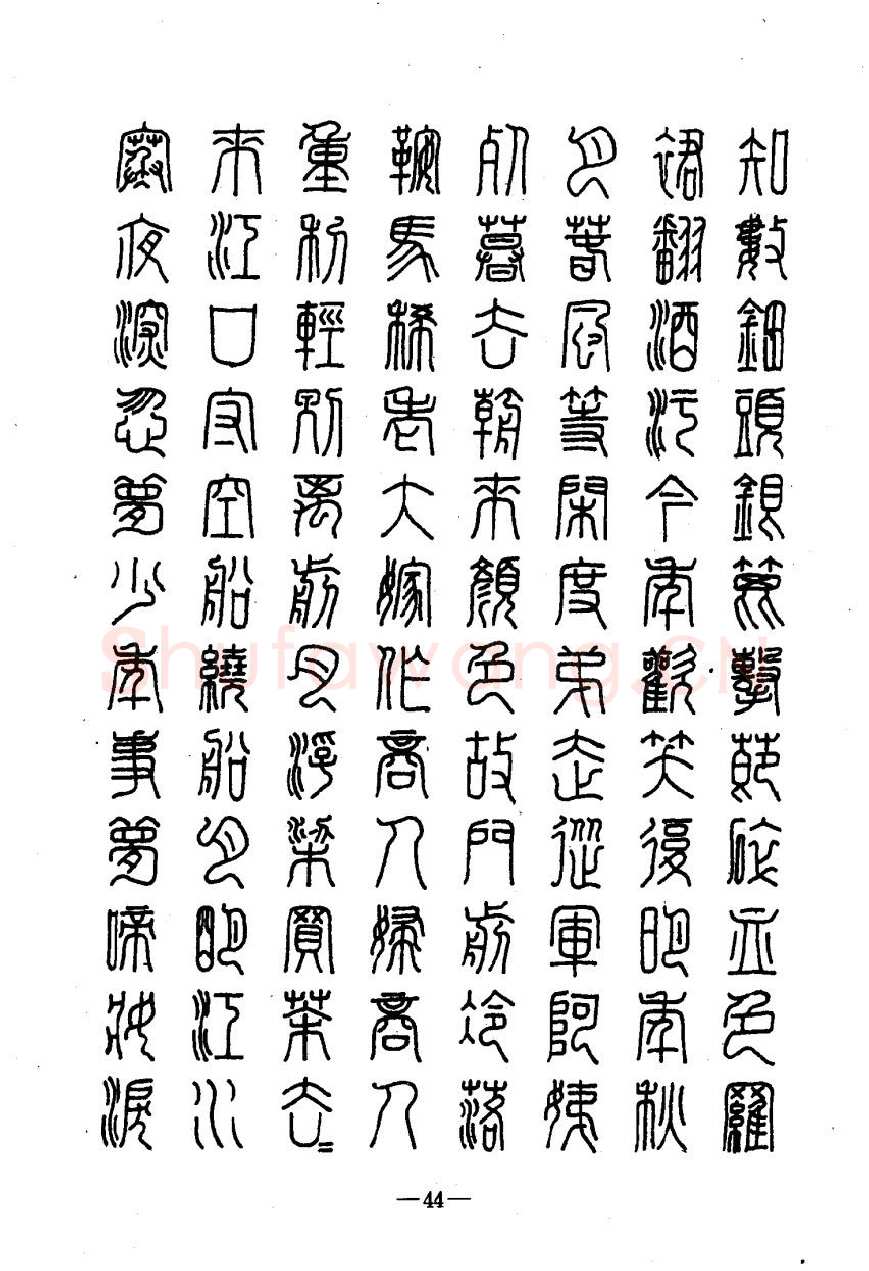 知數鈿頭銀篦擊節碎血色羅
裙翻酒污今年歡笑復明年秋
月春風等閑度弟走從軍阿姨
死暮去朝來顏色故門前冷落
鞍馬稀老大嫁作商人婦商人
重利輕別離前月浮梁買茶去=
來江口守空船繞船月明江水
寒夜深忽夢少年事夢啼妝淚
—44—
Shufawang.CN